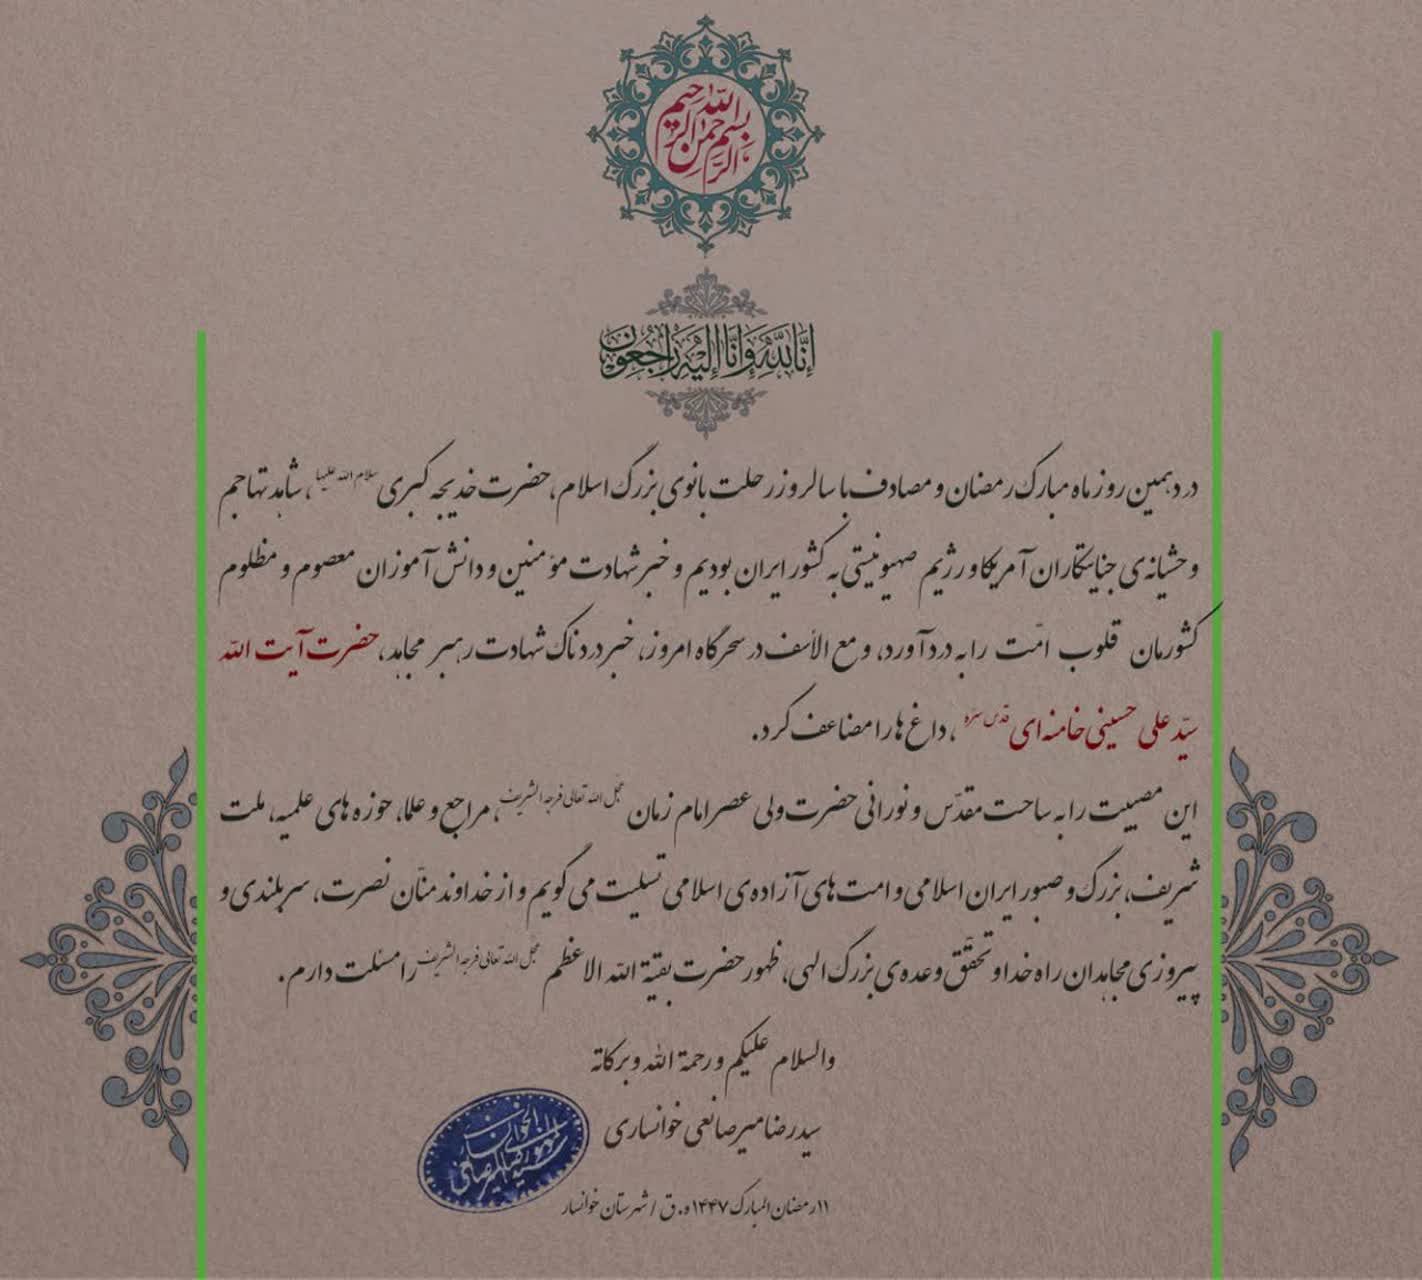 بسم الله الرحمن الرحیم
إنّا لِلّٰهِ وَإِنَّا إِلَيْهِ رَاجِعُونَ
در دهمین روز ماه مبارک رمضان و مصادف با سالروز رحلت بانوی بزرگ اسلام، حضرت خدیجه کبری سلام الله علیها، شاهد تهاجم
وحشیانه‌ی جنایتکاران آمریکا و رژیم صهیونیستی به کشور ایران بودیم و خبر شهادت مؤمنین و دانش آموزان معصوم و مظلوم
کشورمان قلوب امّت را به درد آورد، و مع الأسف در سحرگاه امروز، خبر دردناک شهادت رهبر مجاهد، حضرت آیت الله
سیّد علی حسینی خامنه‌ای قدّس سرّه، داغ‌ها را مضاعف کرد.
این مصیبت را به ساحت مقدّس و نورانی حضرت ولی عصر امام زمان عجّل الله تعالی فرجه الشریف، مراجع و علما، حوزه‌های علمیه، ملت
شریف، بزرگ و صبور ایران اسلامی و امت‌های آزاده‌ی اسلامی تسلیت می‌گویم و از خداوند منّان نصرت، سربلندی و
پیروزی مجاهدان راه خدا و تحقّق وعده‌ی بزرگ الهی، ظهور حضرت بقیة الله الاعظم عجّل الله تعالی فرجه الشریف را مسئلت دارم.
والسلام علیکم و رحمة الله و برکاته
سیدرضا میرصانعی خوانساری
۱۱ رمضان المبارک ۱۴۴۷ ه.ق / شهرستان خوانسار